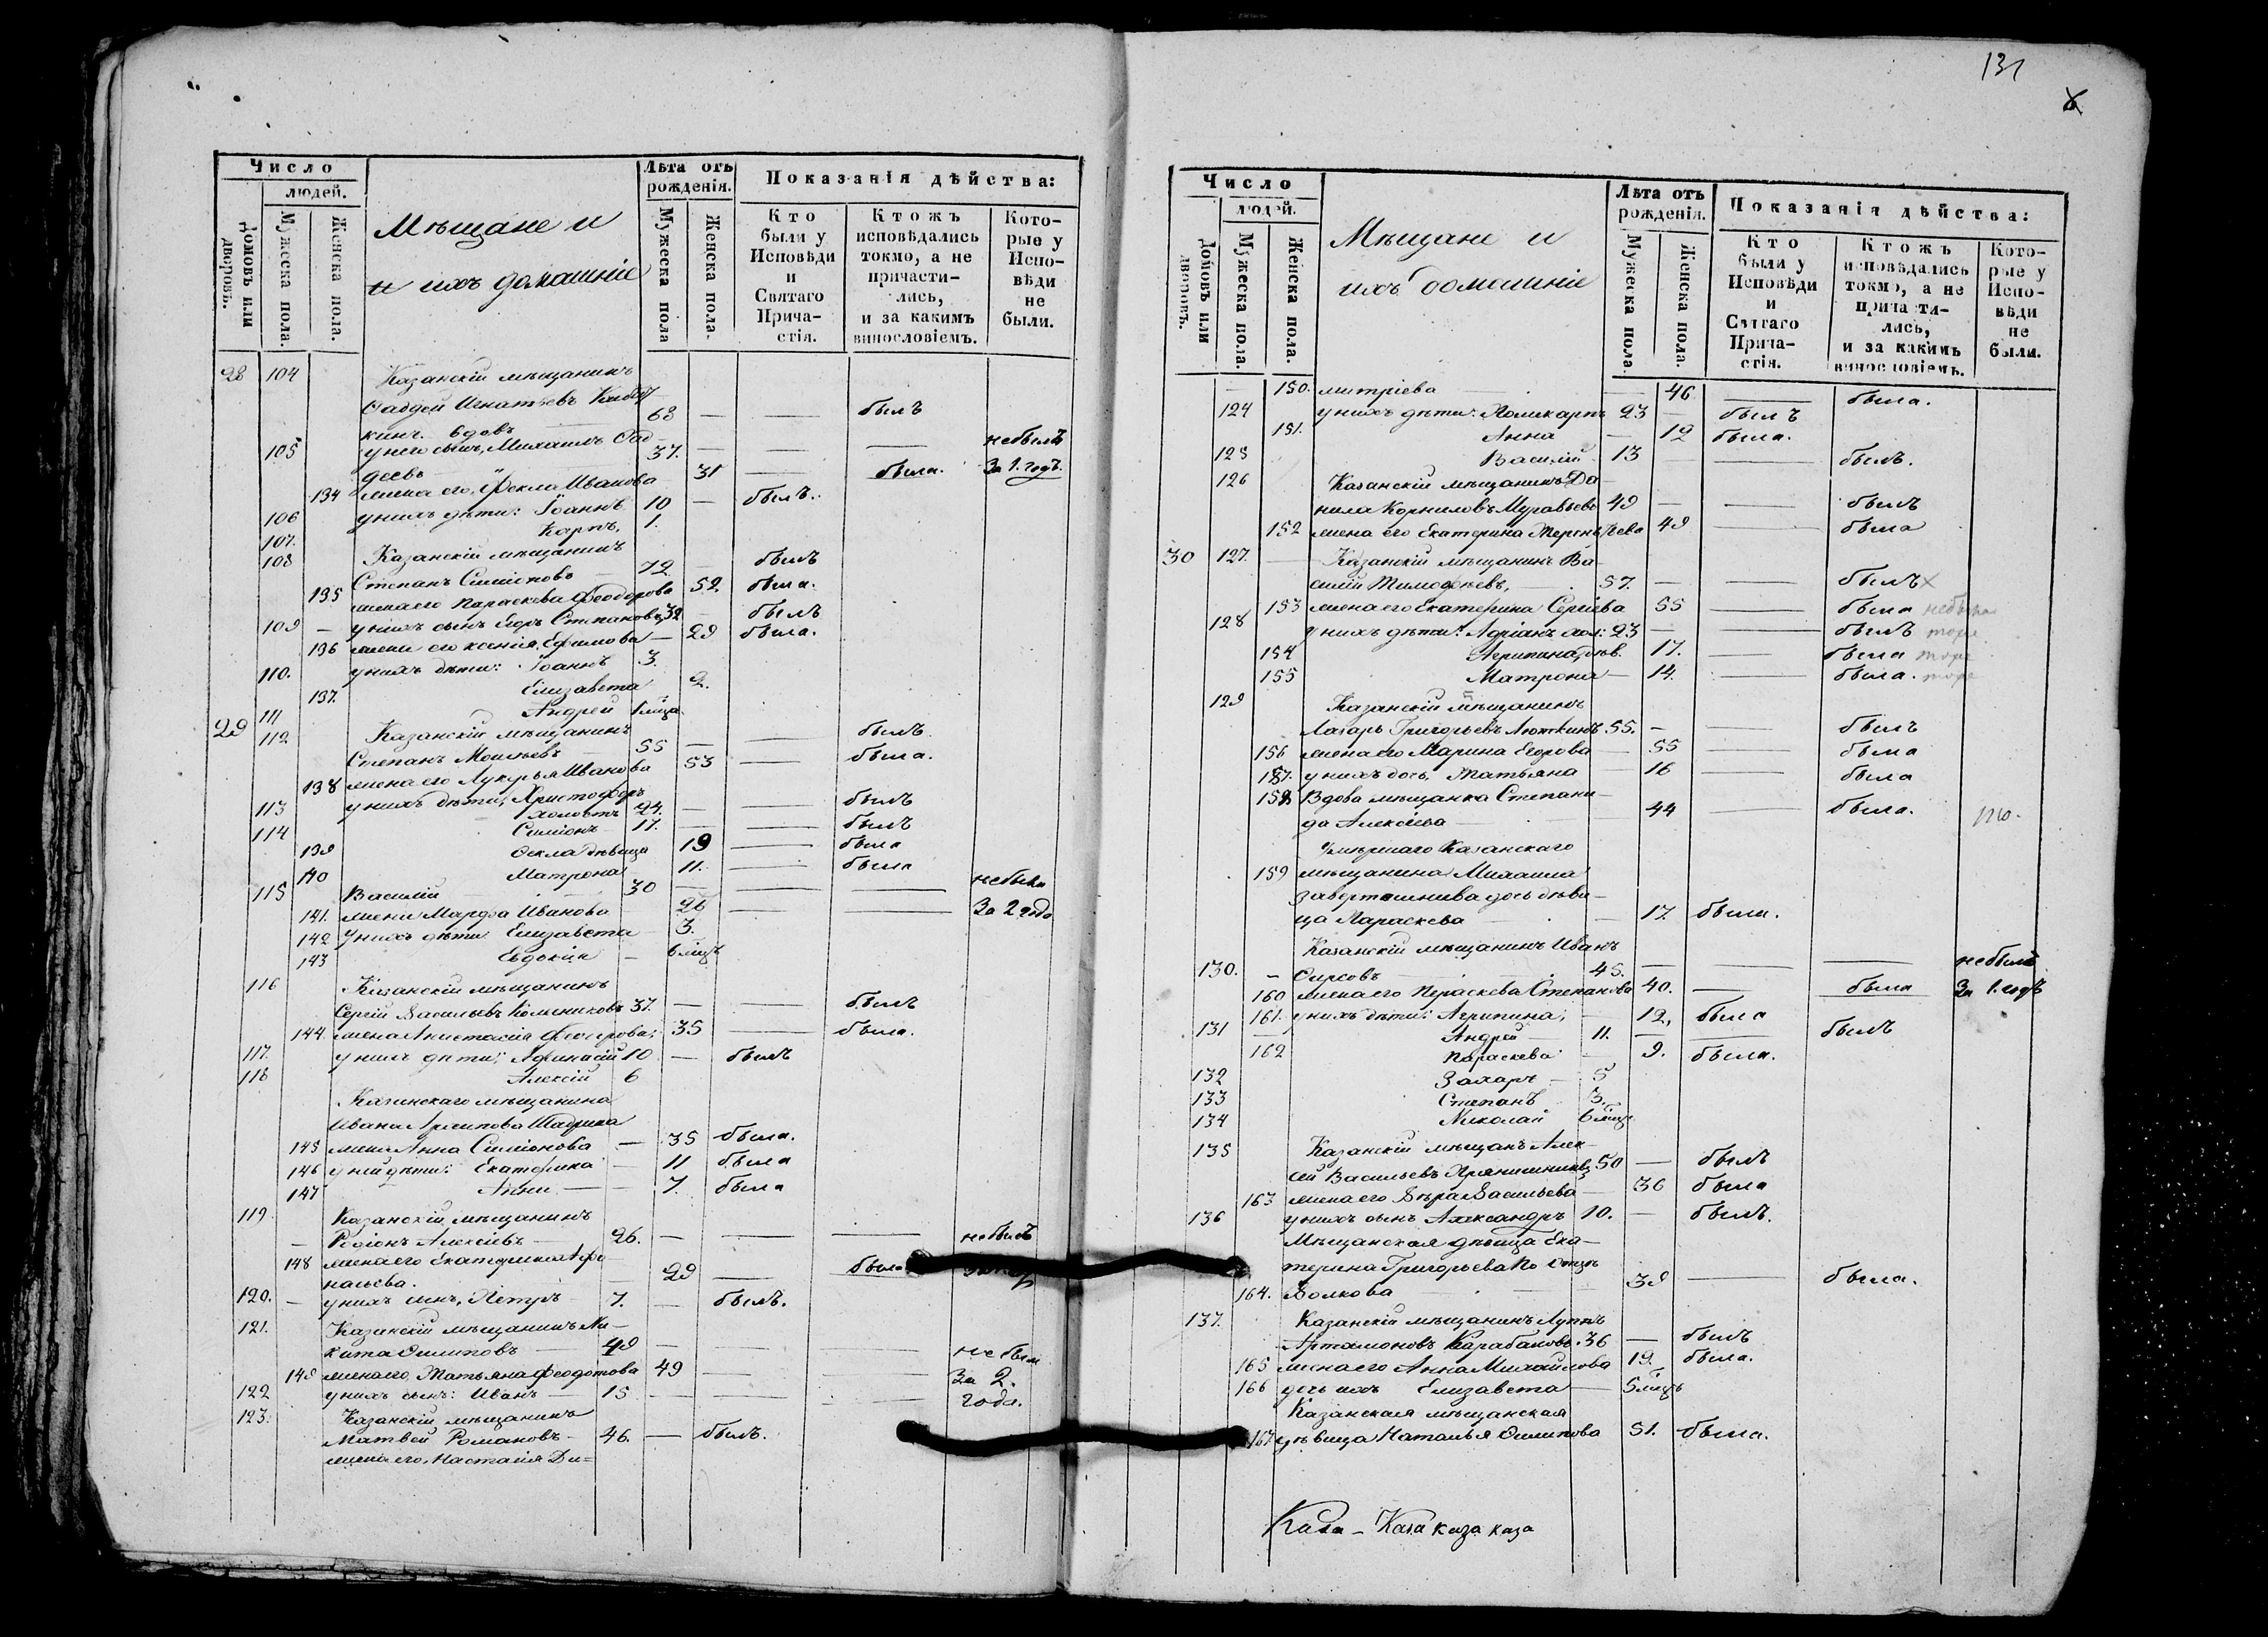 Число
людей.
Домовъ или дворовъ.
Мужеска пола.
Женска пола.
Мѣщане и
и ихъ домашніе
Лѣта отъ рожденія.
Мужеска пола
Женска пола.
Показанія дѣйства:
Кто были у Исповѣди и Святаго Прича- стія.
Ктожъ исповѣдались токмо, а не причасти- лись, и за какимъ винословіемъ.
Кото- рые у Испо- вѣди не были.
28 104 Казанскій мѣщанинъ
Фаддей Игнатьевъ
кинъ. вдовъ 68 — — былъ
105 у него сынъ, Михаилъ Фад- небылъ
деевъ 37. — — — За 1. годъ.
134 жена его, Фекла Иванова 31 — была.
106 у нихъ дѣти: Іоаннъ 10 — былъ.
107. Карпъ, 1.
108 Казанскій мѣщанинъ
Степанъ Симіоновъ — 72 — былъ
135 жена его Параскева Феодорова 52. была.
109 — у нихъ сынъ Егоръ Степановъ, 32 — былъ
136 жена его Ксенія, Ефимова — 29 была.
110. у нихъ дѣти: Іоаннъ 3.
137. Елизавета 2.
111 Андрей 1 мѣсца.
29 112 Казанскій мѣщанинъ
Степанъ Моисѣевъ — 55 — — былъ.
138 жена его Лукерья Иванова 53 — была.
113 у нихъ дѣти, Христофоръ
холостъ 24. — — былъ
114 Симіонъ 17. — — былъ
139 Фекла дѣвица 19 — была
140 Матрона 11. — была
115 Василій 30 — — — небыли
141. жена Марфа Иванова 26 — — За 2 года
142 у нихъ дѣти Елизавета 3.
143 Евдокія — 6 мѣсц.
116 Казанскій мѣщанинъ
Сергій Васильевъ 37. — — былъ
144. жена Анастасія Феодорова; 35 — была.
117. у нихъ дѣти: Афанасій 10 — былъ
118 Алексій 6
Казанскаго мѣщанина
Ивана Архипова
145 жена Анна Симіонова — 35 была.
146 у ней дѣти: Екатерина — 11 была
147 Анна — 7. была
119 Казанскій мѣщанинъ
— Родіонъ Алексіевъ — 26. — — — небылъ
148 жена его Екатерина Афа-
насьева. 29 — была
120. — у нихъ сынъ, Петръ 7. — былъ.
121. Казанскій мѣщанинъ Ни-
кита Филиповъ — 49 — — — небыли
149 жена его, Татьяна Феодотова 49 — — За 2.
122 у нихъ сынъ: Иванъ — 15 — — — года.
123. Казанскій мѣщанинъ
Матвей Романовъ — 46. — былъ.
жена его, Настасія Ди=
131
Число
людей.
Домовъ или дворовъ.
Мужеска пола.
Женска пола.
Мѣщане и
ихъ домашніе
Лѣта отъ рожденія.
Мужеска пола.
Женска пола.
Показанія дѣйства:
Кто были у Исповѣди и Святаго Прича- стія.
Ктожъ исповѣдались токмо, а не причасти- лись, и за какимъ винословіемъ.
Кото- рые у Испо- вѣди не были.
— 150. митріева — 46 — была.
124 у нихъ дѣти: Поликарпъ 23 — былъ
151. Анна — 12 была.
125 Василій 13 — былъ.
126 Казанскій мѣщанинъ Да-
нила Корниловъ Муравьевъ 49 — — былъ
152 жена его Екатерина Терентьева 49 — была
30 127. Казанскій мѣщанинъ Ва-
силій Тимофѣевъ, 57. — — былъ
153 жена его Екатерина Сергіева 55 — была
128 у нихъ дѣти: Адріанъ хол: 23 — — былъ тоже
154 Агрипина, дѣв. 17. — была тоже
155 Матрона — 14. — была. тоже
129 Казанскій мѣщанинъ
Лазарь Григорьевъ Лоткинъ 55. — — былъ
156 жена его Марина Егорова — 55 — была
157. у нихъ дочь, Татьяна 16 — была
158 Вдова мѣщанка Степани-
да Алексіева — 44 — была.
Умершаго Казанскаго
159 мѣщанина Михаила
дочь дѣви-
ца Параскева — 17 была.
Казанскій мѣщанинъ Иванъ
130. — Фирсовъ 45. — — — небылъ
160 жена его Параскева Степанова 40. — была За 1. годъ
161. у нихъ дѣти: Агрипина, — 12, была
131 Андрей — 11. — — былъ
162 Параскева — 9. была.
132 Захаръ — 5
133 Степанъ 3.
134 Николай 6 мѣсц.
135 Казанскій мѣщанъ Алек-
сей Васильевъ Прянишниковъ 50 — былъ
163 жена его Вѣра Васильева — 36 была
136 у нихъ сынъ Александръ 10. — былъ.
Мѣщанская дѣвица Ека-
терина Григорьева по отцѣ
164. Волкова 39 — была.
137. Казанскій мѣщанинъ Луппъ
Артамоновъ Карабановъ. 36 — былъ
165 жена его Анна Михайлова 19. была.
166 дочь ихъ Елизавета — 5 мѣсц.
Казанская мѣщанская
167 дѣвица Наталья Филипова 51. была.
Каза – Каза каза каза